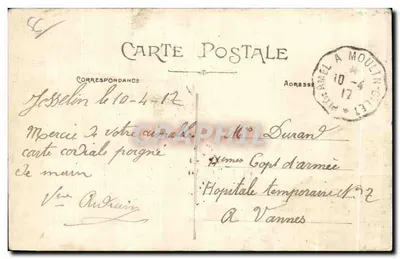 CARTE POSTALE
CORRESPONDANCE
ADRESSE
PLOËRMEL A MOULIN-GILET
10-4
17
Josselin le 10-4-17
Mercie de votre aimable
carte cordial poigné
de main
Vve
Durand
èmes Cops d'armée
Hopitale temporaire N° 2
A Vannes